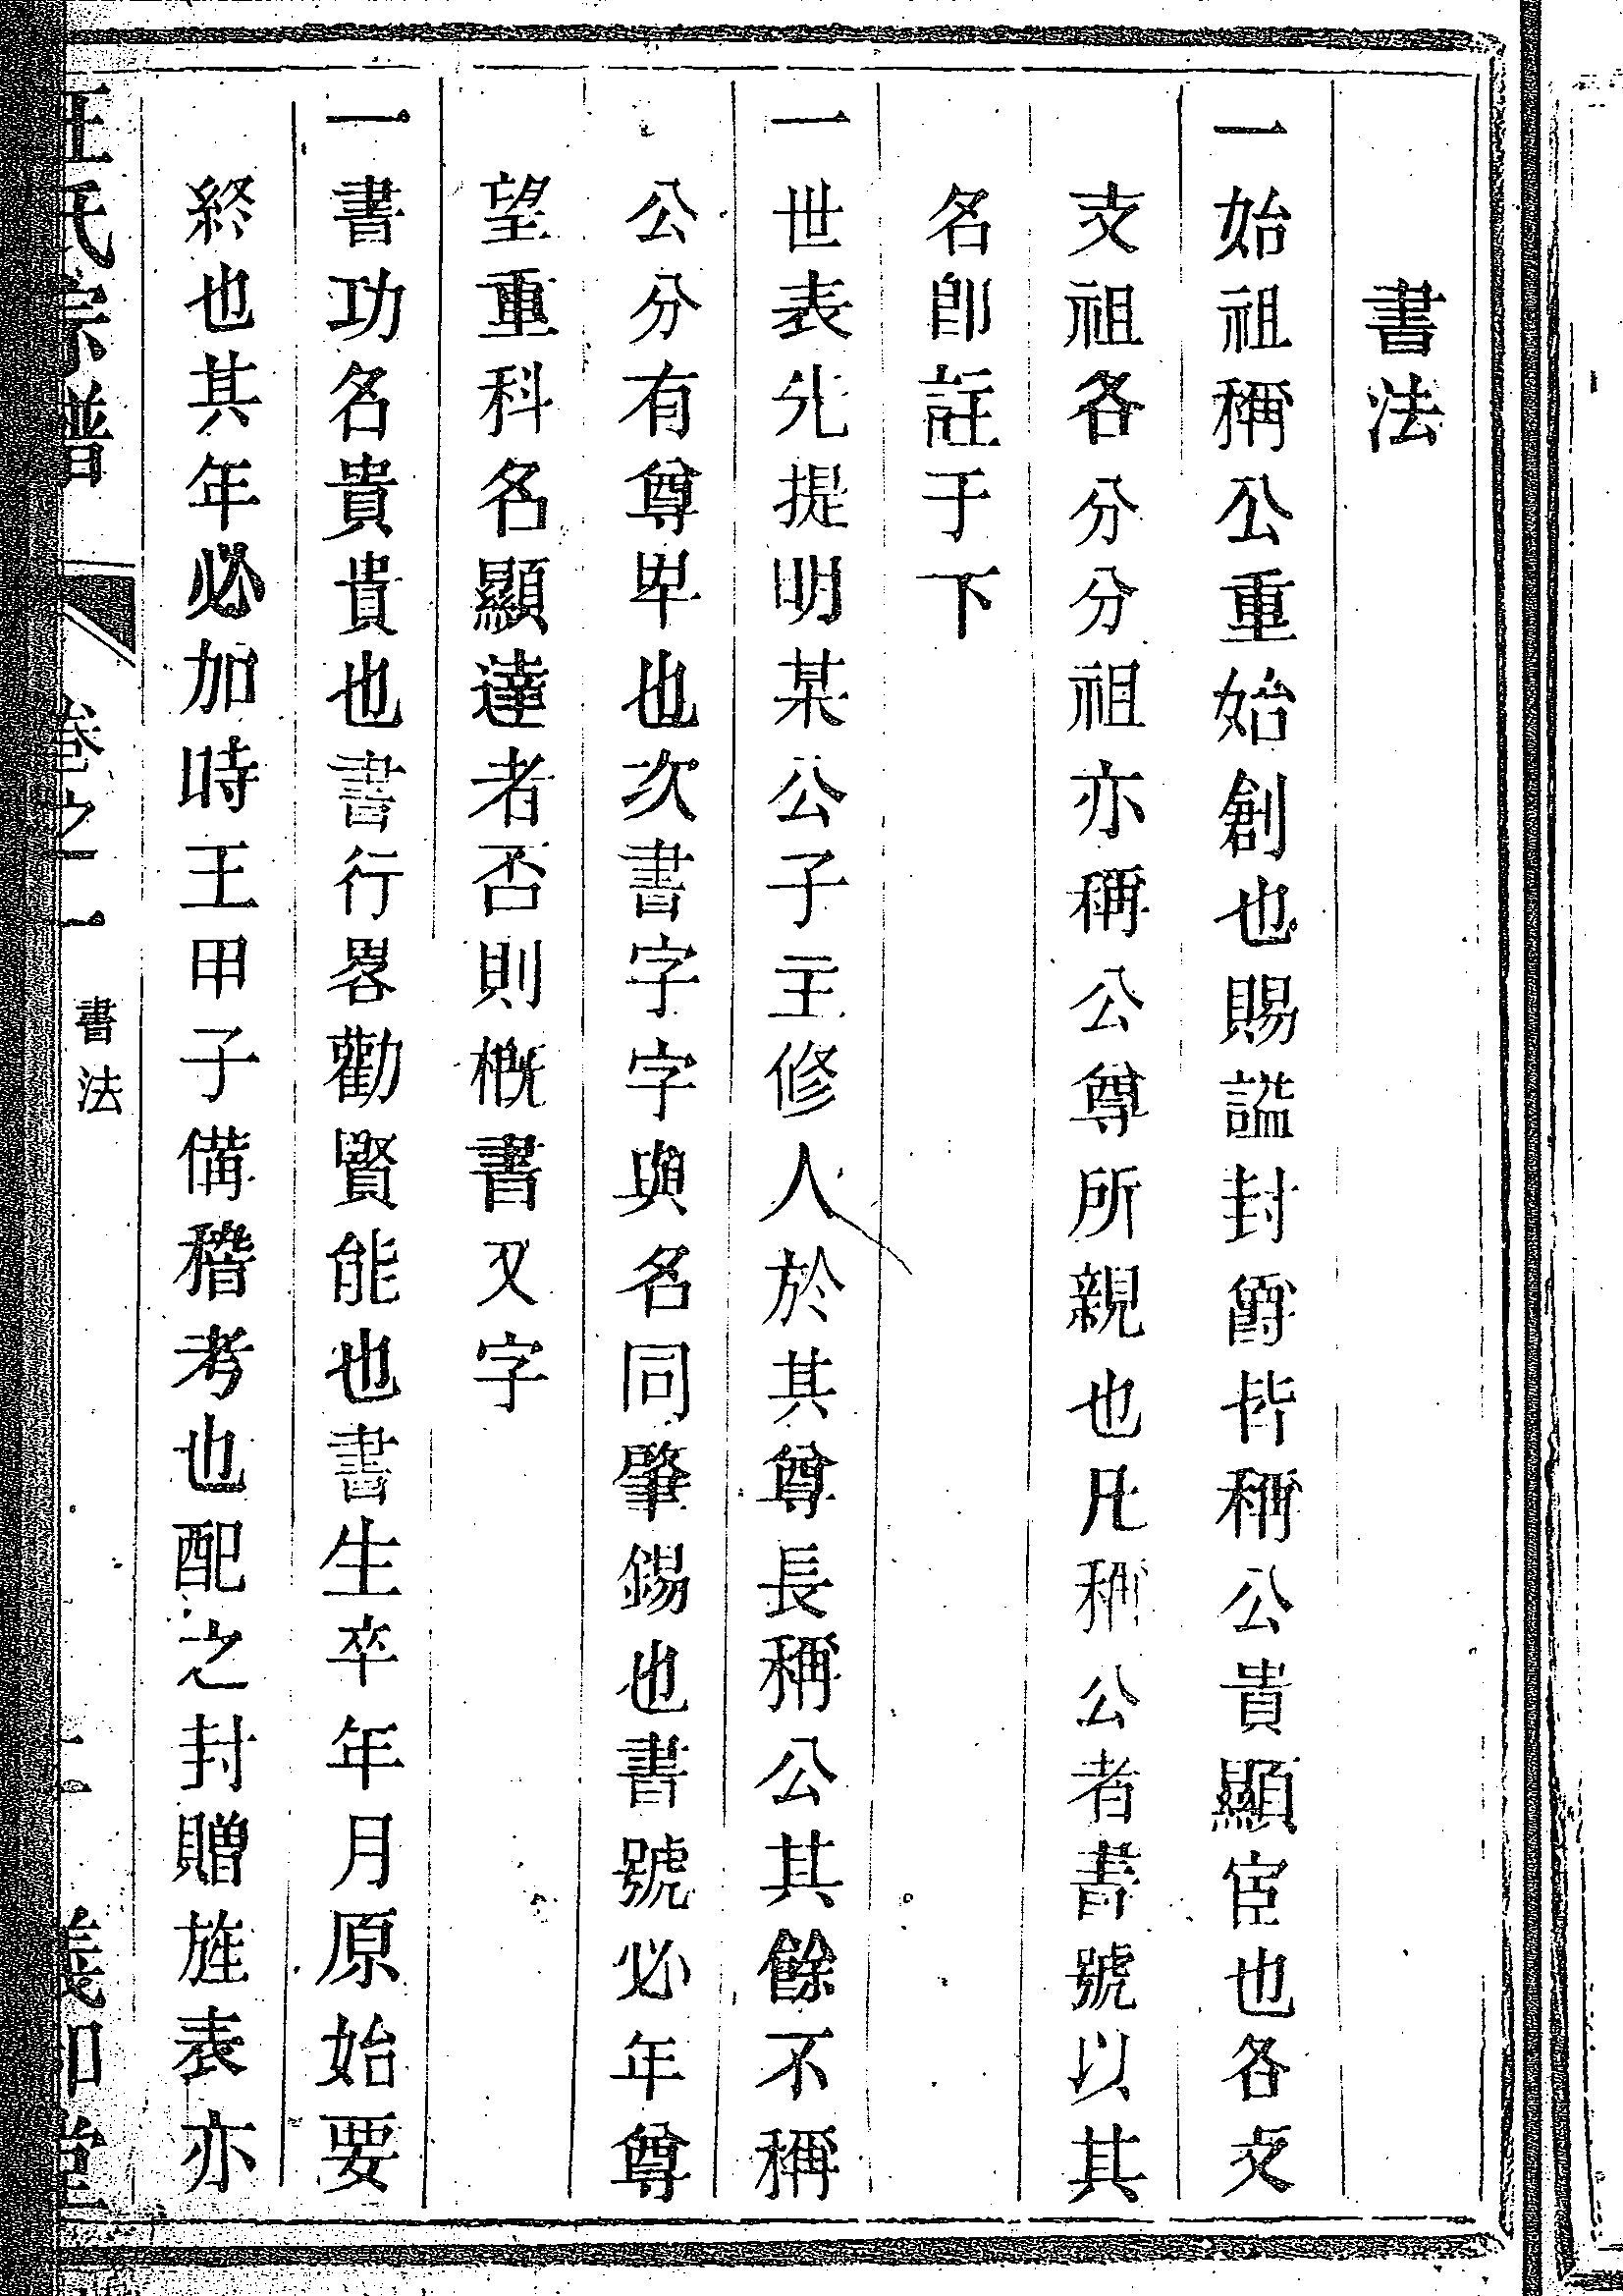 書法
一始祖稱公重始創也賜謚封爵皆稱公貴顯宦也各支
支祖各分分祖亦稱公尊所親也凡稱公者書號以其
名卽註于下
一世表先提明某公子主修人於其尊長稱公其餘不稱
公分有尊卑也次書字字與名同肇錫也書號必年尊
望重科名顯達者否則概書又字
一書功名貴貴也書行畧勸賢能也書生卒年月原始要
終也其年必加時王甲子備稽考也配之封贈旌表亦
王氏宗譜 卷之一 書法 義和堂